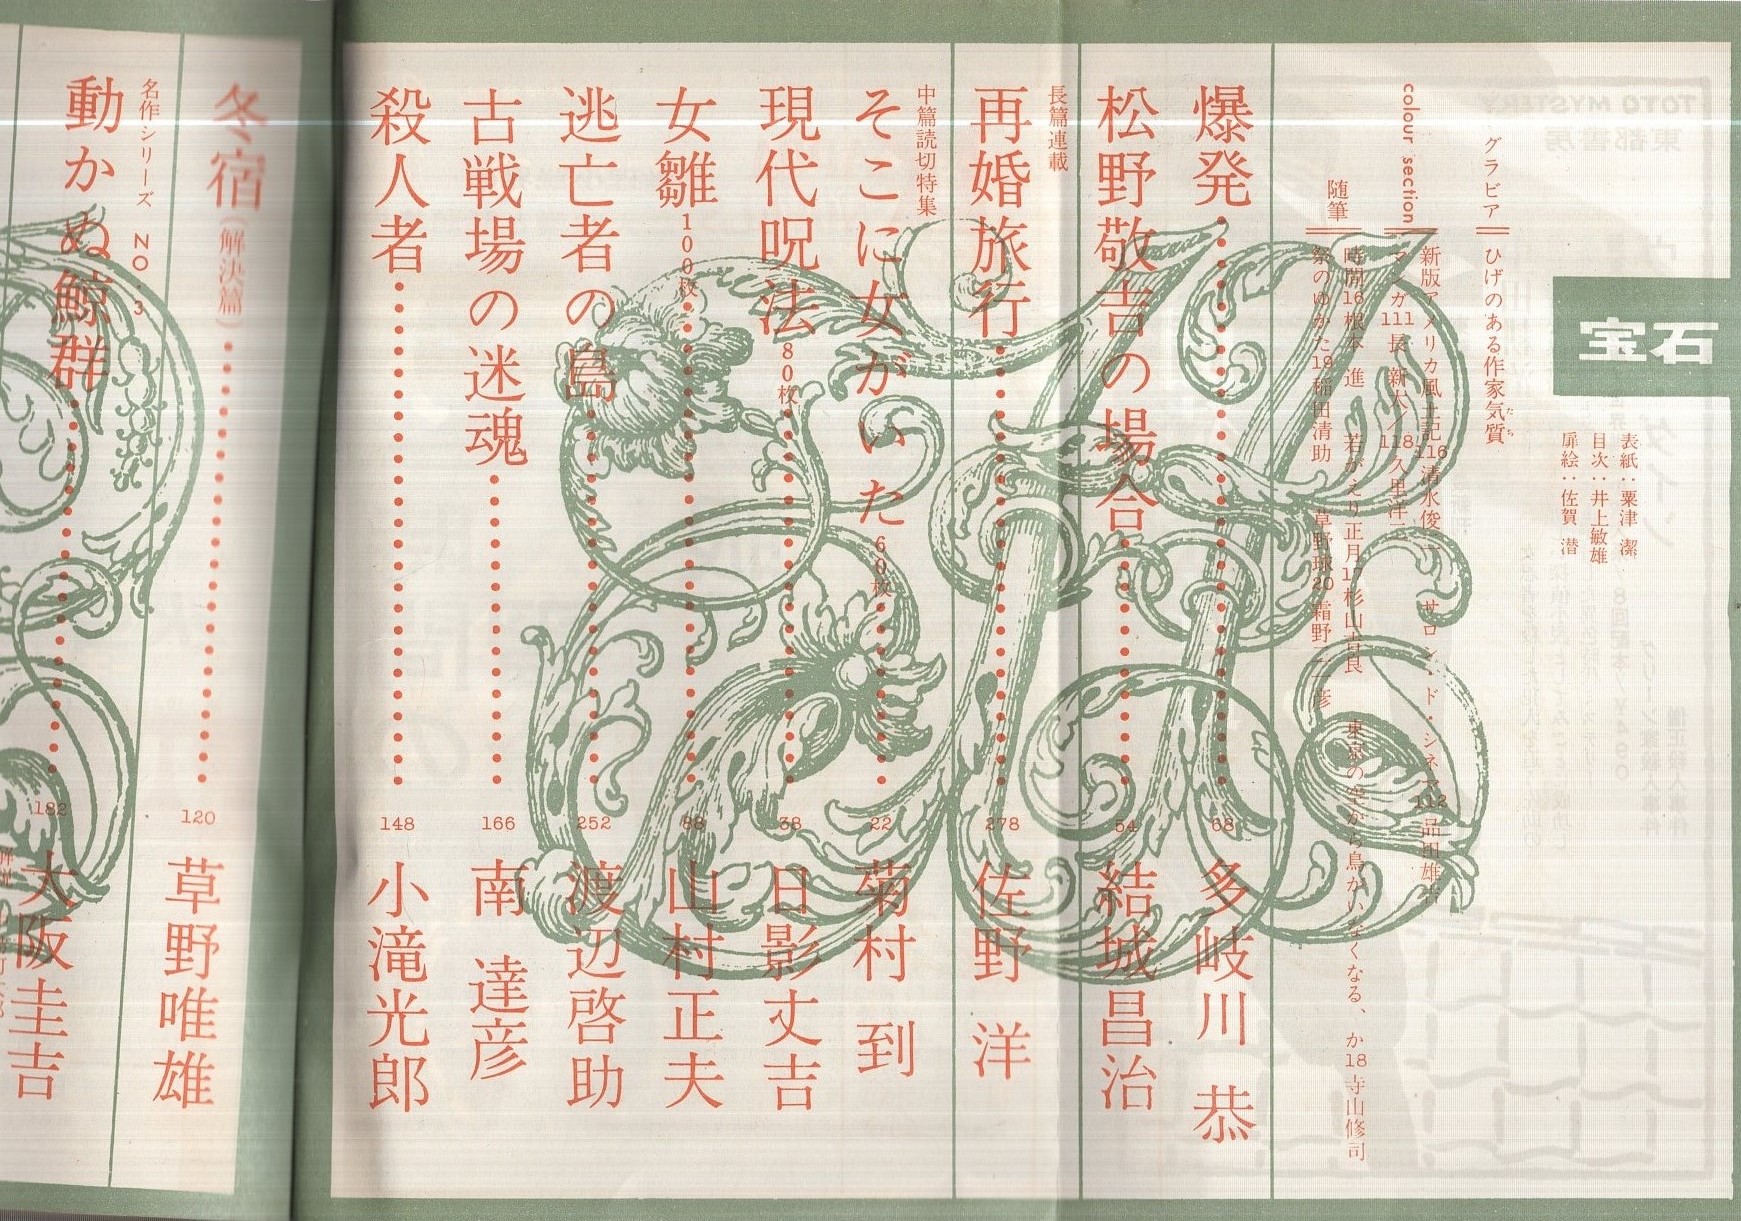 宝石
表紙：粟津　潔
目次：井上敏雄
扉絵：佐賀　潜
グラビア
ひげのある作家気質
たち
colour section
新版アメリカ風土記116清水俊二　サロン・ド・シネマ112品田雄吉
マンガ111長　新太／118久里洋二
随筆
時間16根本　進　若がえり正月17杉山吉良　東京の空から鳥がいなくなる、か18寺山修司
祭のゆかた19稲田清助　草野球20霜野二一彦
爆発 68 多岐川　恭
松野敬吉の場合 54 結城昌治
長篇連載
再婚旅行 278 佐野　洋
中篇読切特集
そこに女がいた 60枚 22 菊村　到
現代呪法 80枚 38 日影丈吉
女雛 100枚 88 山村正夫
逃亡者の島 252 渡辺啓助
古戦場の迷魂 166 南　達彦
殺人者 148 小滝光郎
冬宿（解決篇） 120 草野唯雄
名作シリーズ NO.3
動かぬ鯨群 182 大阪圭吉
TOTO MYSTERY
東都書房